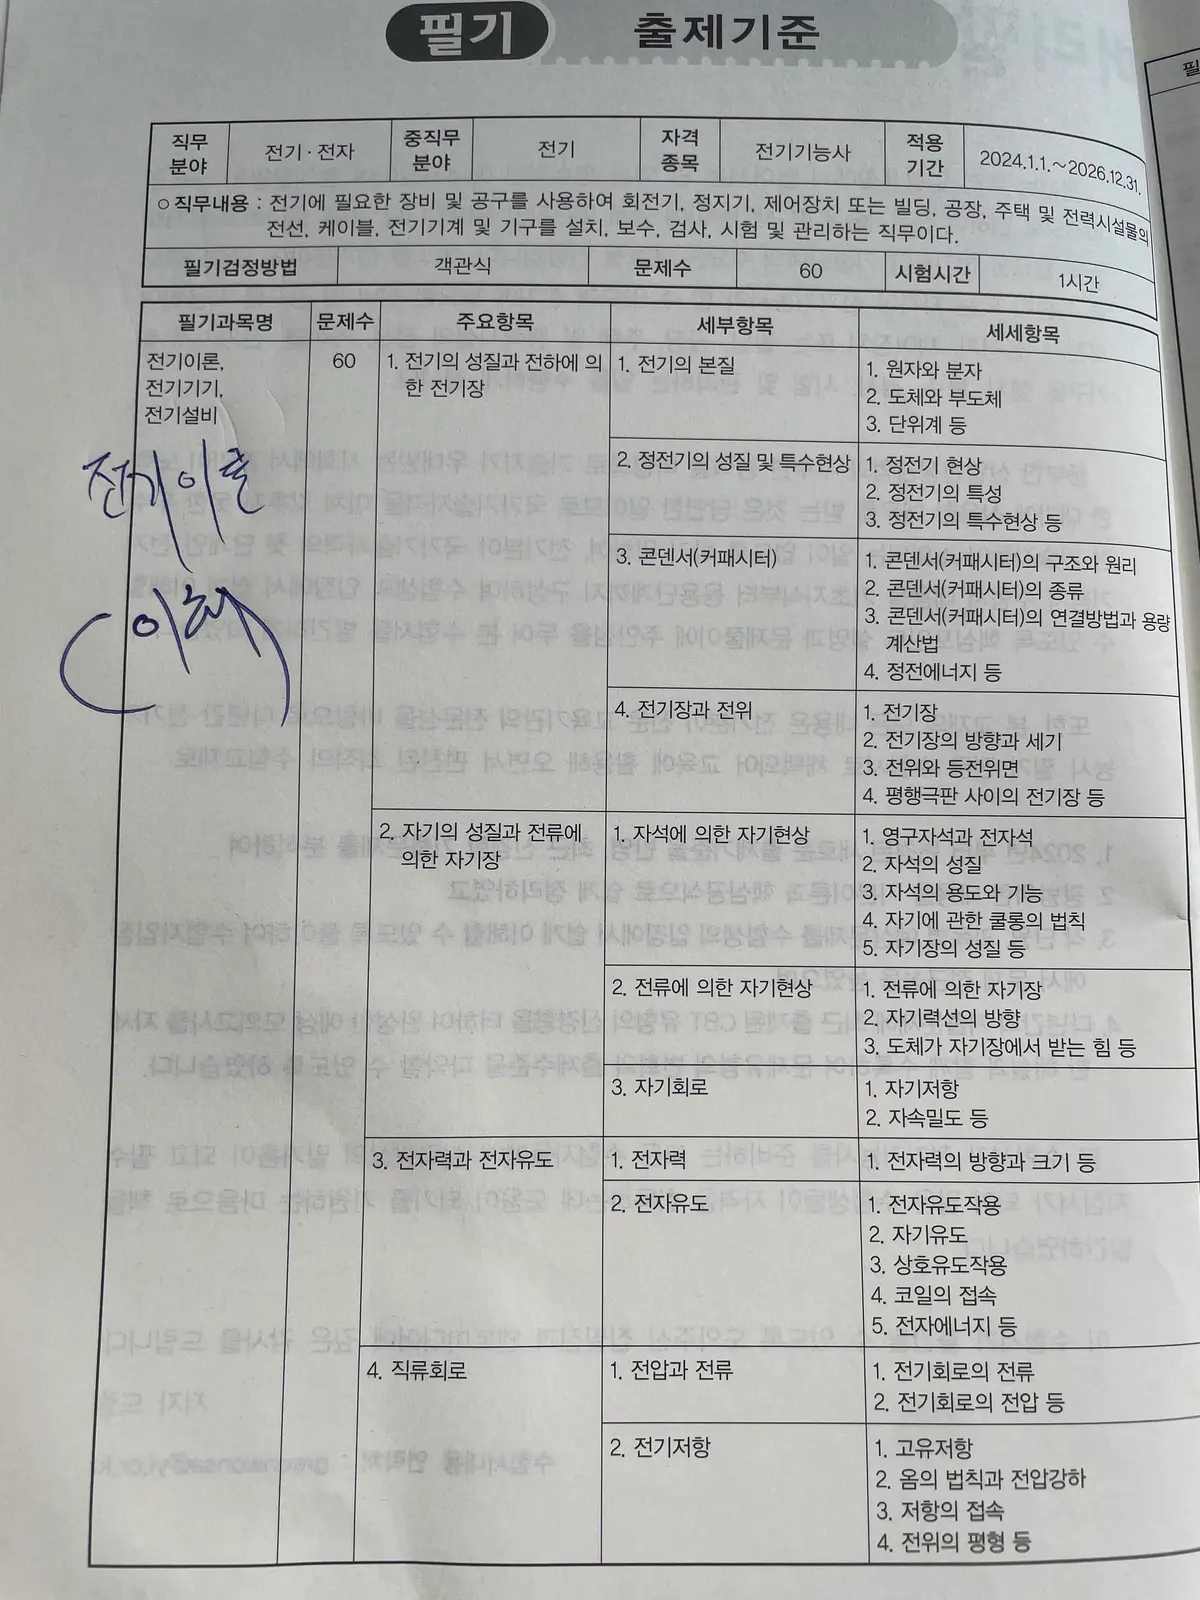 필기 출제기준
직무분야 전기·전자 중직무분야 전기 자격종목 전기기능사 적용기간 2024.1.1.~2026.12.31.
○ 직무내용 : 전기에 필요한 장비 및 공구를 사용하여 회전기, 정지기, 제어장치 또는 빌딩, 공장, 주택 및 전력시설물의
전선, 케이블, 전기기계 및 기구를 설치, 보수, 검사, 시험 및 관리하는 직무이다.
필기검정방법 객관식 문제수 60 시험시간 1시간
필기과목명 문제수 주요항목 세부항목 세세항목
전기이론,
전기기기,
전기설비
60
1. 전기의 성질과 전하에 의
한 전기장
1. 전기의 본질
1. 원자와 분자
2. 도체와 부도체
3. 단위계 등
2. 정전기의 성질 및 특수현상
1. 정전기 현상
2. 정전기의 특성
3. 정전기의 특수현상 등
3. 콘덴서(커패시터)
1. 콘덴서(커패시터)의 구조와 원리
2. 콘덴서(커패시터)의 종류
3. 콘덴서(커패시터)의 연결방법과 용량
계산법
4. 정전에너지 등
4. 전기장과 전위
1. 전기장
2. 전기장의 방향과 세기
3. 전위와 등전위면
4. 평행극판 사이의 전기장 등
2. 자기의 성질과 전류에
의한 자기장
1. 자석에 의한 자기현상
1. 영구자석과 전자석
2. 자석의 성질
3. 자석의 용도와 기능
4. 자기에 관한 쿨롱의 법칙
5. 자기장의 성질 등
2. 전류에 의한 자기현상
1. 전류에 의한 자기장
2. 자기력선의 방향
3. 도체가 자기장에서 받는 힘 등
3. 자기회로
1. 자기저항
2. 자속밀도 등
3. 전자력과 전자유도
1. 전자력
1. 전자력의 방향과 크기 등
2. 전자유도
1. 전자유도작용
2. 자기유도
3. 상호유도작용
4. 코일의 접속
5. 전자에너지 등
4. 직류회로
1. 전압과 전류
1. 전기회로의 전류
2. 전기회로의 전압 등
2. 전기저항
1. 고유저항
2. 옴의 법칙과 전압강하
3. 저항의 접속
4. 전위의 평형 등
전기이론
(이해)
필